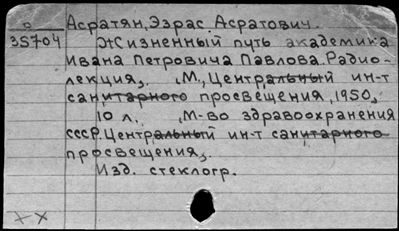 Асратян, Эзрас Асратович.
D
35704
Жизненный путь академика
Ивана Петровича Павлова. Радио-
лекция. М., Центральный ин-т
санитарного просвещения, 1950.
10 л. М-во здравоохранения
СССР. Центральный ин-т санитарного
просвещения.
Изд. стеклогр.
XX